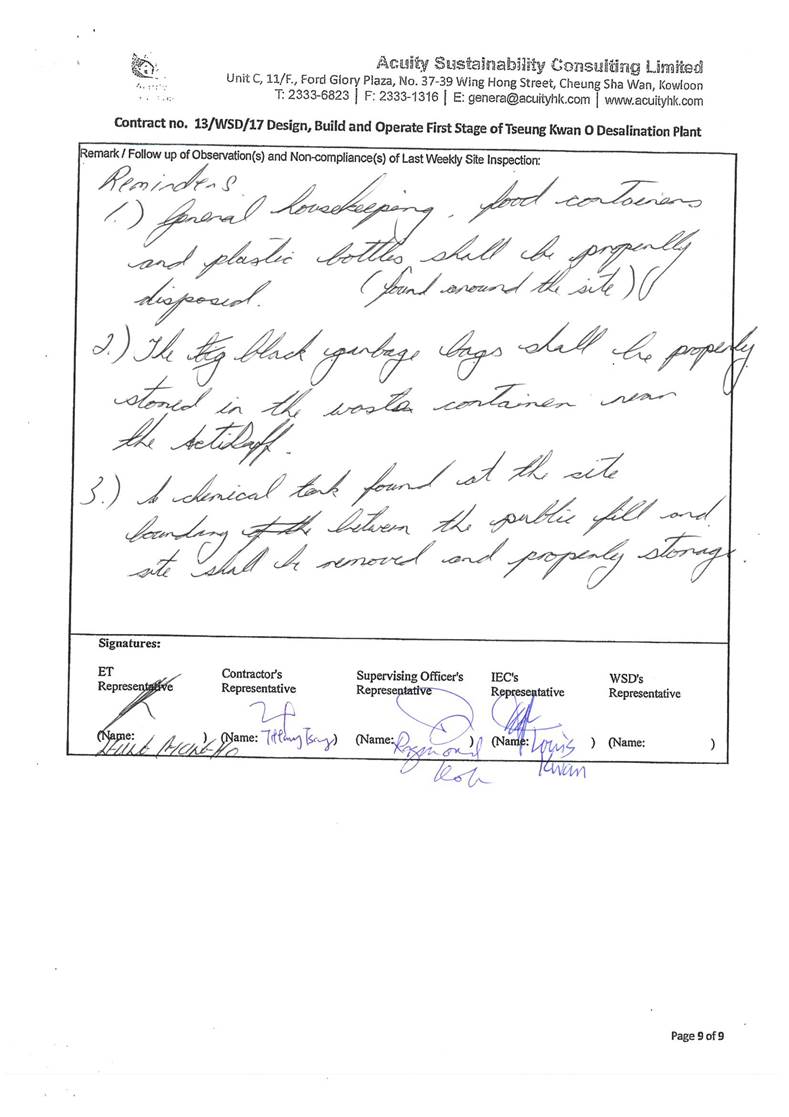 Acuity Sustainability Consulting Limited
Unit C, 11/F., Ford Glory Plaza, No. 37-39 Wing Hong Street, Cheung Sha Wan, Kowloon
T: 2333-6823 | F: 2333-1316 | E: genera@acuityhk.com | www.acuityhk.com
Contract no. 13/WSD/17 Design, Build and Operate First Stage of Tseung Kwan O Desalination Plant
Remark / Follow up of Observation(s) and Non-compliance(s) of Last Weekly Site Inspection:
Reminders
1.) General housekeeping, food containers
and plastic bottles shall be properly
disposed. (found around the site)
2.) The black garbage bags shall be properly
stored in the waste container near
the
3.) A chemical tank found at the site
boundary between the public fill and
site shall be removed and properly storage.
Signatures:
ET Representative
Contractor's Representative
Supervising Officer's Representative
IEC's Representative
WSD's Representative
(Name: )
(Name: )
(Name: Raymond Koh )
(Name: Louis Kwan )
(Name: )
Page 9 of 9